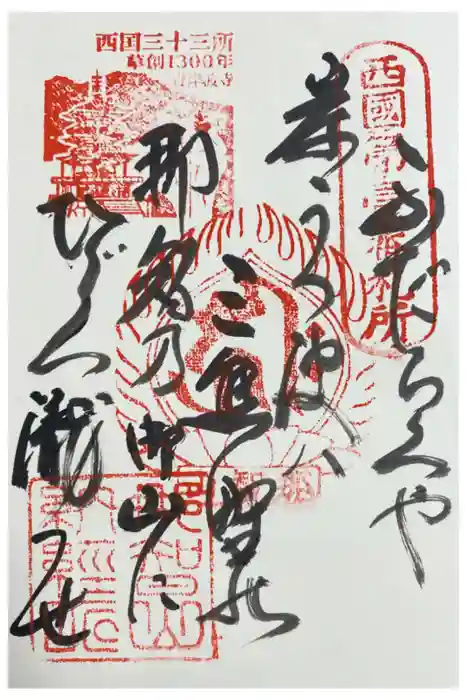 西国三十三所
草創1300年
西國第一番札所
ふだらくや
岸うつ波ハ
三熊野の
那智乃御山に
ひゞく瀧つせ
那智山